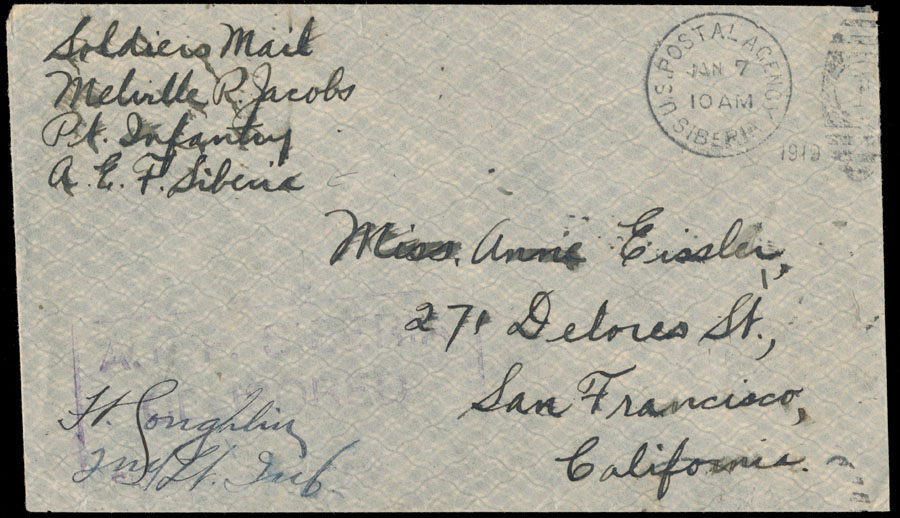 Soldiers Mail
Melville R. Jacobs
Pvt. Infantry
A. E. F. Siberia
U.S. POSTAL AGENCY
JAN 7
10 AM
SIBERIA
1919
Miss. Annie Eissler,
271 Delores St.,
San Francisco,
California.
A.E.F. SIBERIA
CENSORED
Coughlin
2nd Lt. Inf.